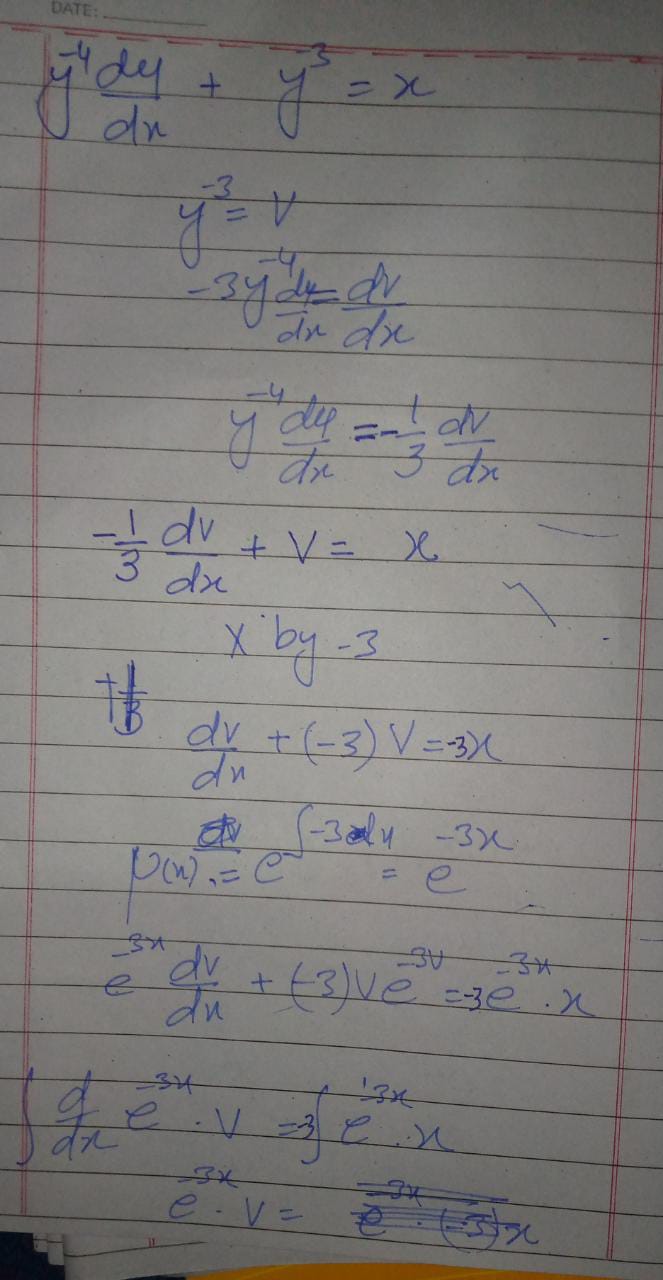 DATE:
y⁻⁴ dy/dx + y⁻³ = x
y⁻³ = V
-3y⁻⁴ dy/dx = dv/dx
y⁻⁴ dy/dx = -1/3 dv/dx
-1/3 dv/dx + V = x
× by -3
dv/dx + (-3) V = -3x
μ(x) = e^∫-3dx = e^-3x
e^-3x dv/dx + (-3)Ve^-3V = -3e^-3x . x
∫ d/dx e^-3x . V = -3∫ e^-3x . x
e^-3x . V =